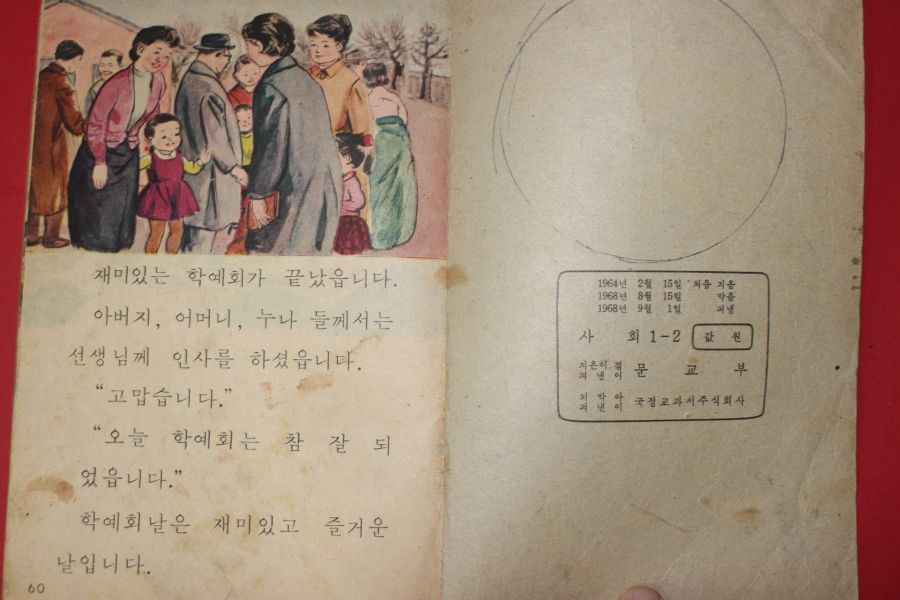 재미있는 학예회가 끝났읍니다.
아버지, 어머니, 누나 들께서는
선생님께 인사를 하셨읍니다.
“고맙습니다.”
“오늘 학예회는 참 잘 되
었읍니다.”
학예회날은 재미있고 즐거운
날입니다.
60
1964년 2월 15일 처음 지음
1968년 8월 15일 박음
1968년 9월 1일 펴냄
사 회 1-2 값 원
지은이 겸
펴낸이 문교부
되박아
펴낸이 국정교과서주식회사